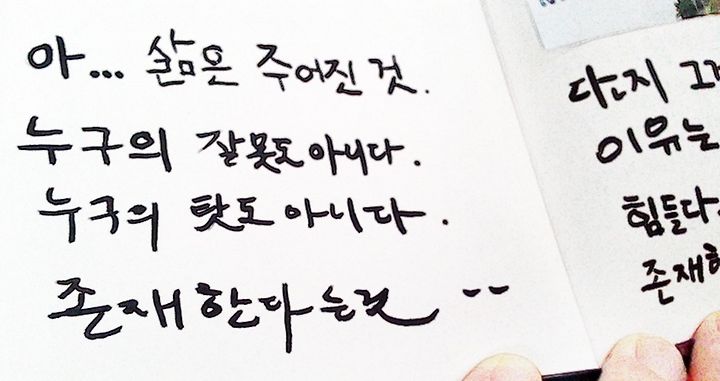 아... 삶은 주어진 것.
누구의 잘못도 아니다.
누구의 탓도 아니다.
존재한다는것 --
단지 그
이유는
힘들다.
존재